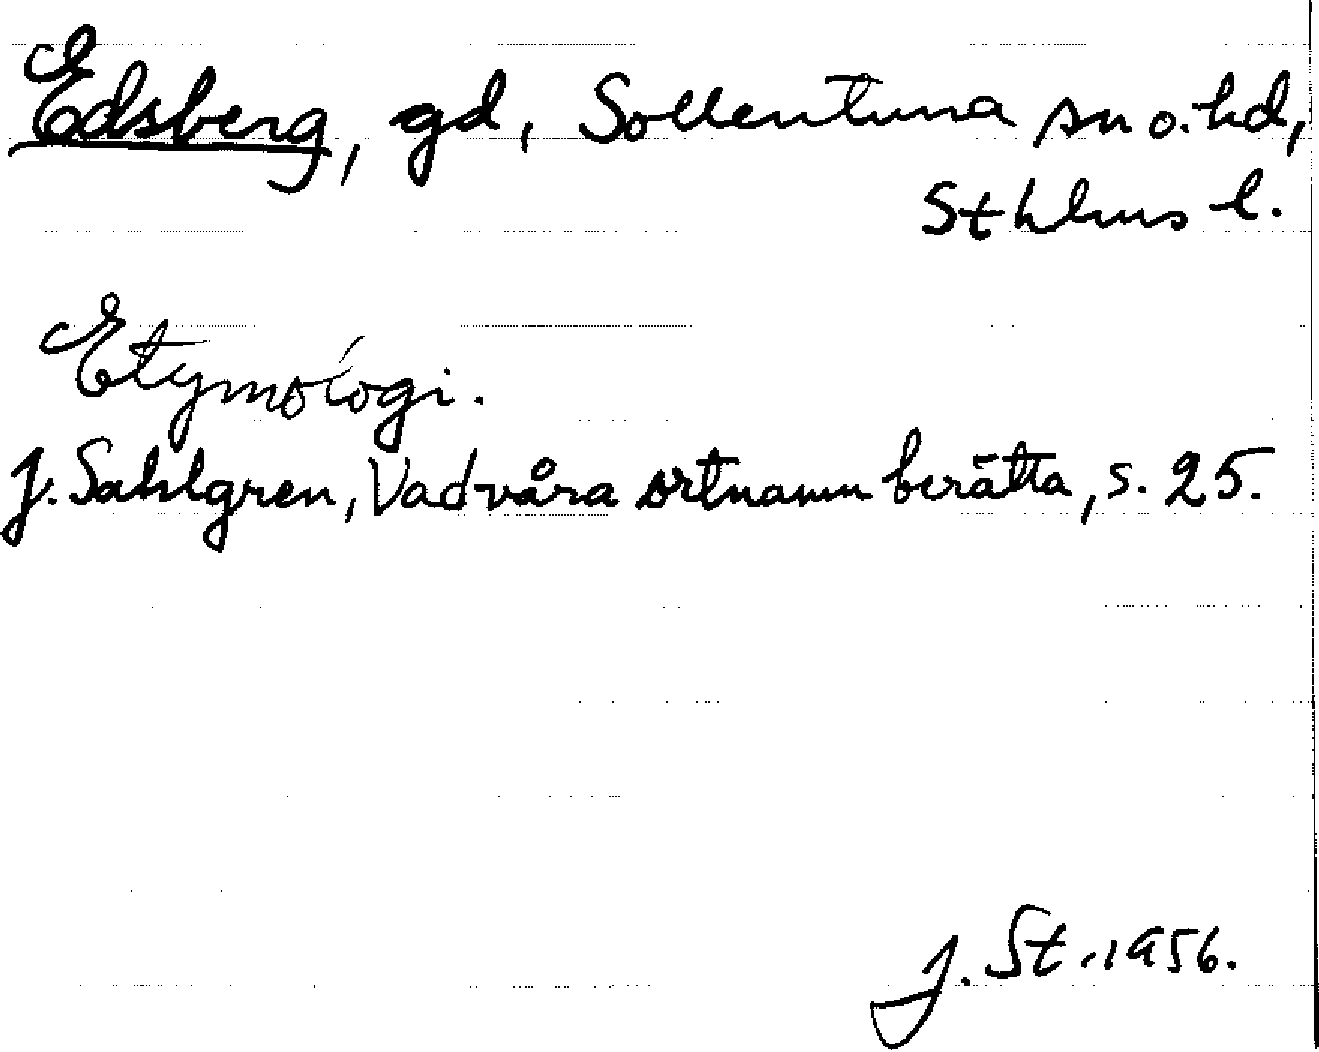 Edsberg, gd, Sollentuna sn o. hd,
Sthlms l.
Etymologi.
J. Sahlgren, Vad våra ortnamn berätta, s. 25.
J. St. 1956.